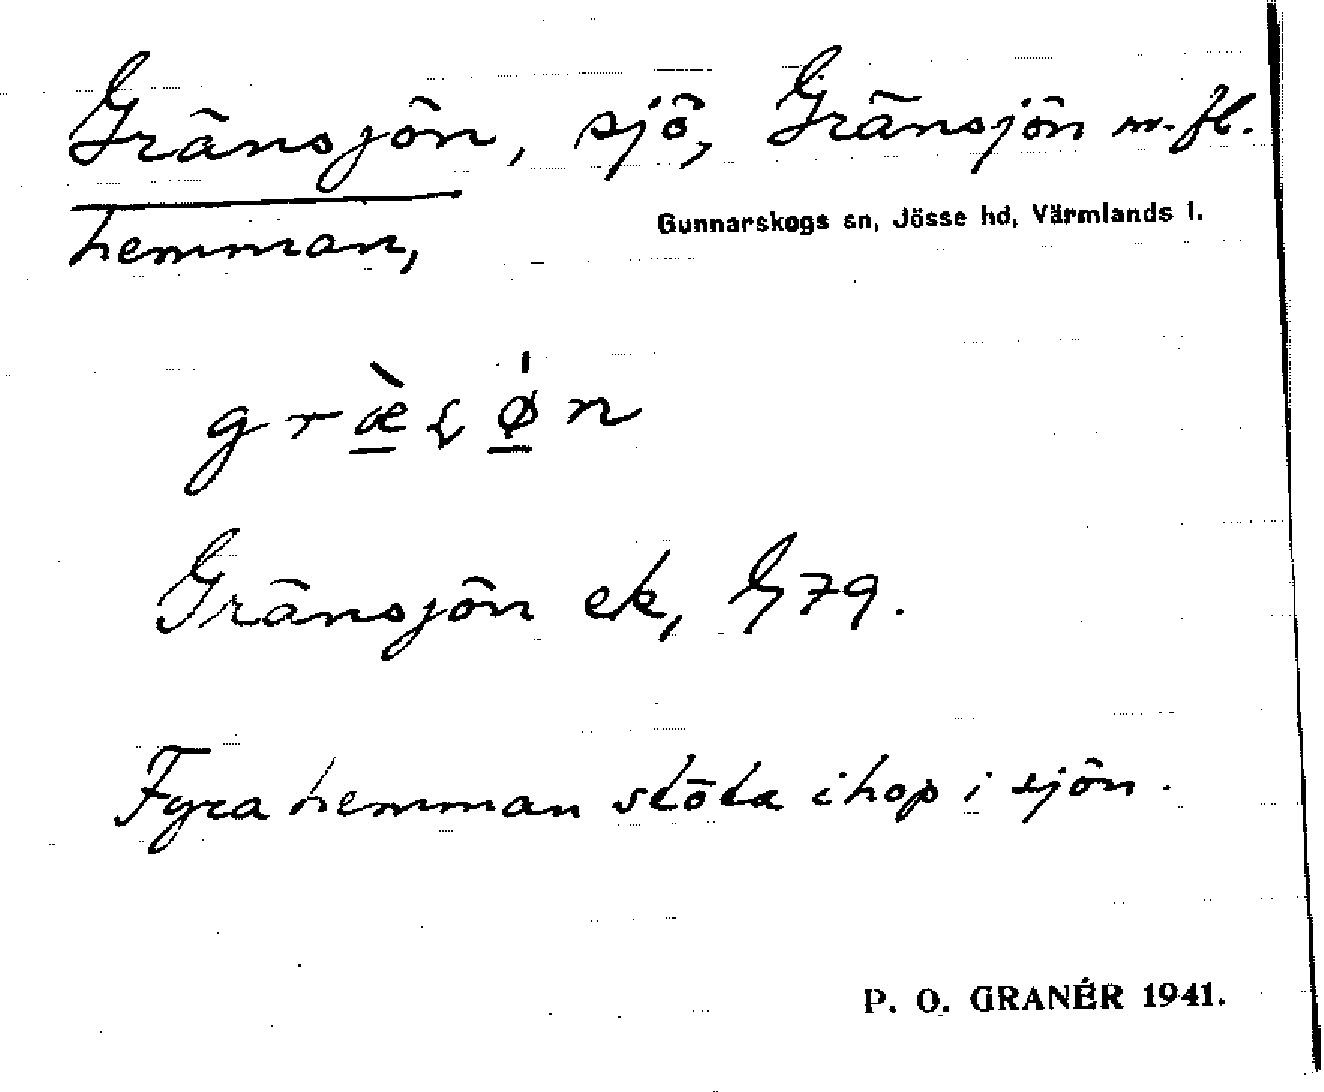 Gränsjön, sjö, Gränsjön m.fl.
hemman,
Gunnarskogs sn, Jösse hd, Värmlands l.
Gränsjön ek, G 79.
Fyra hemman stöta ihop i sjön.
P. O. GRANÉR 1941.